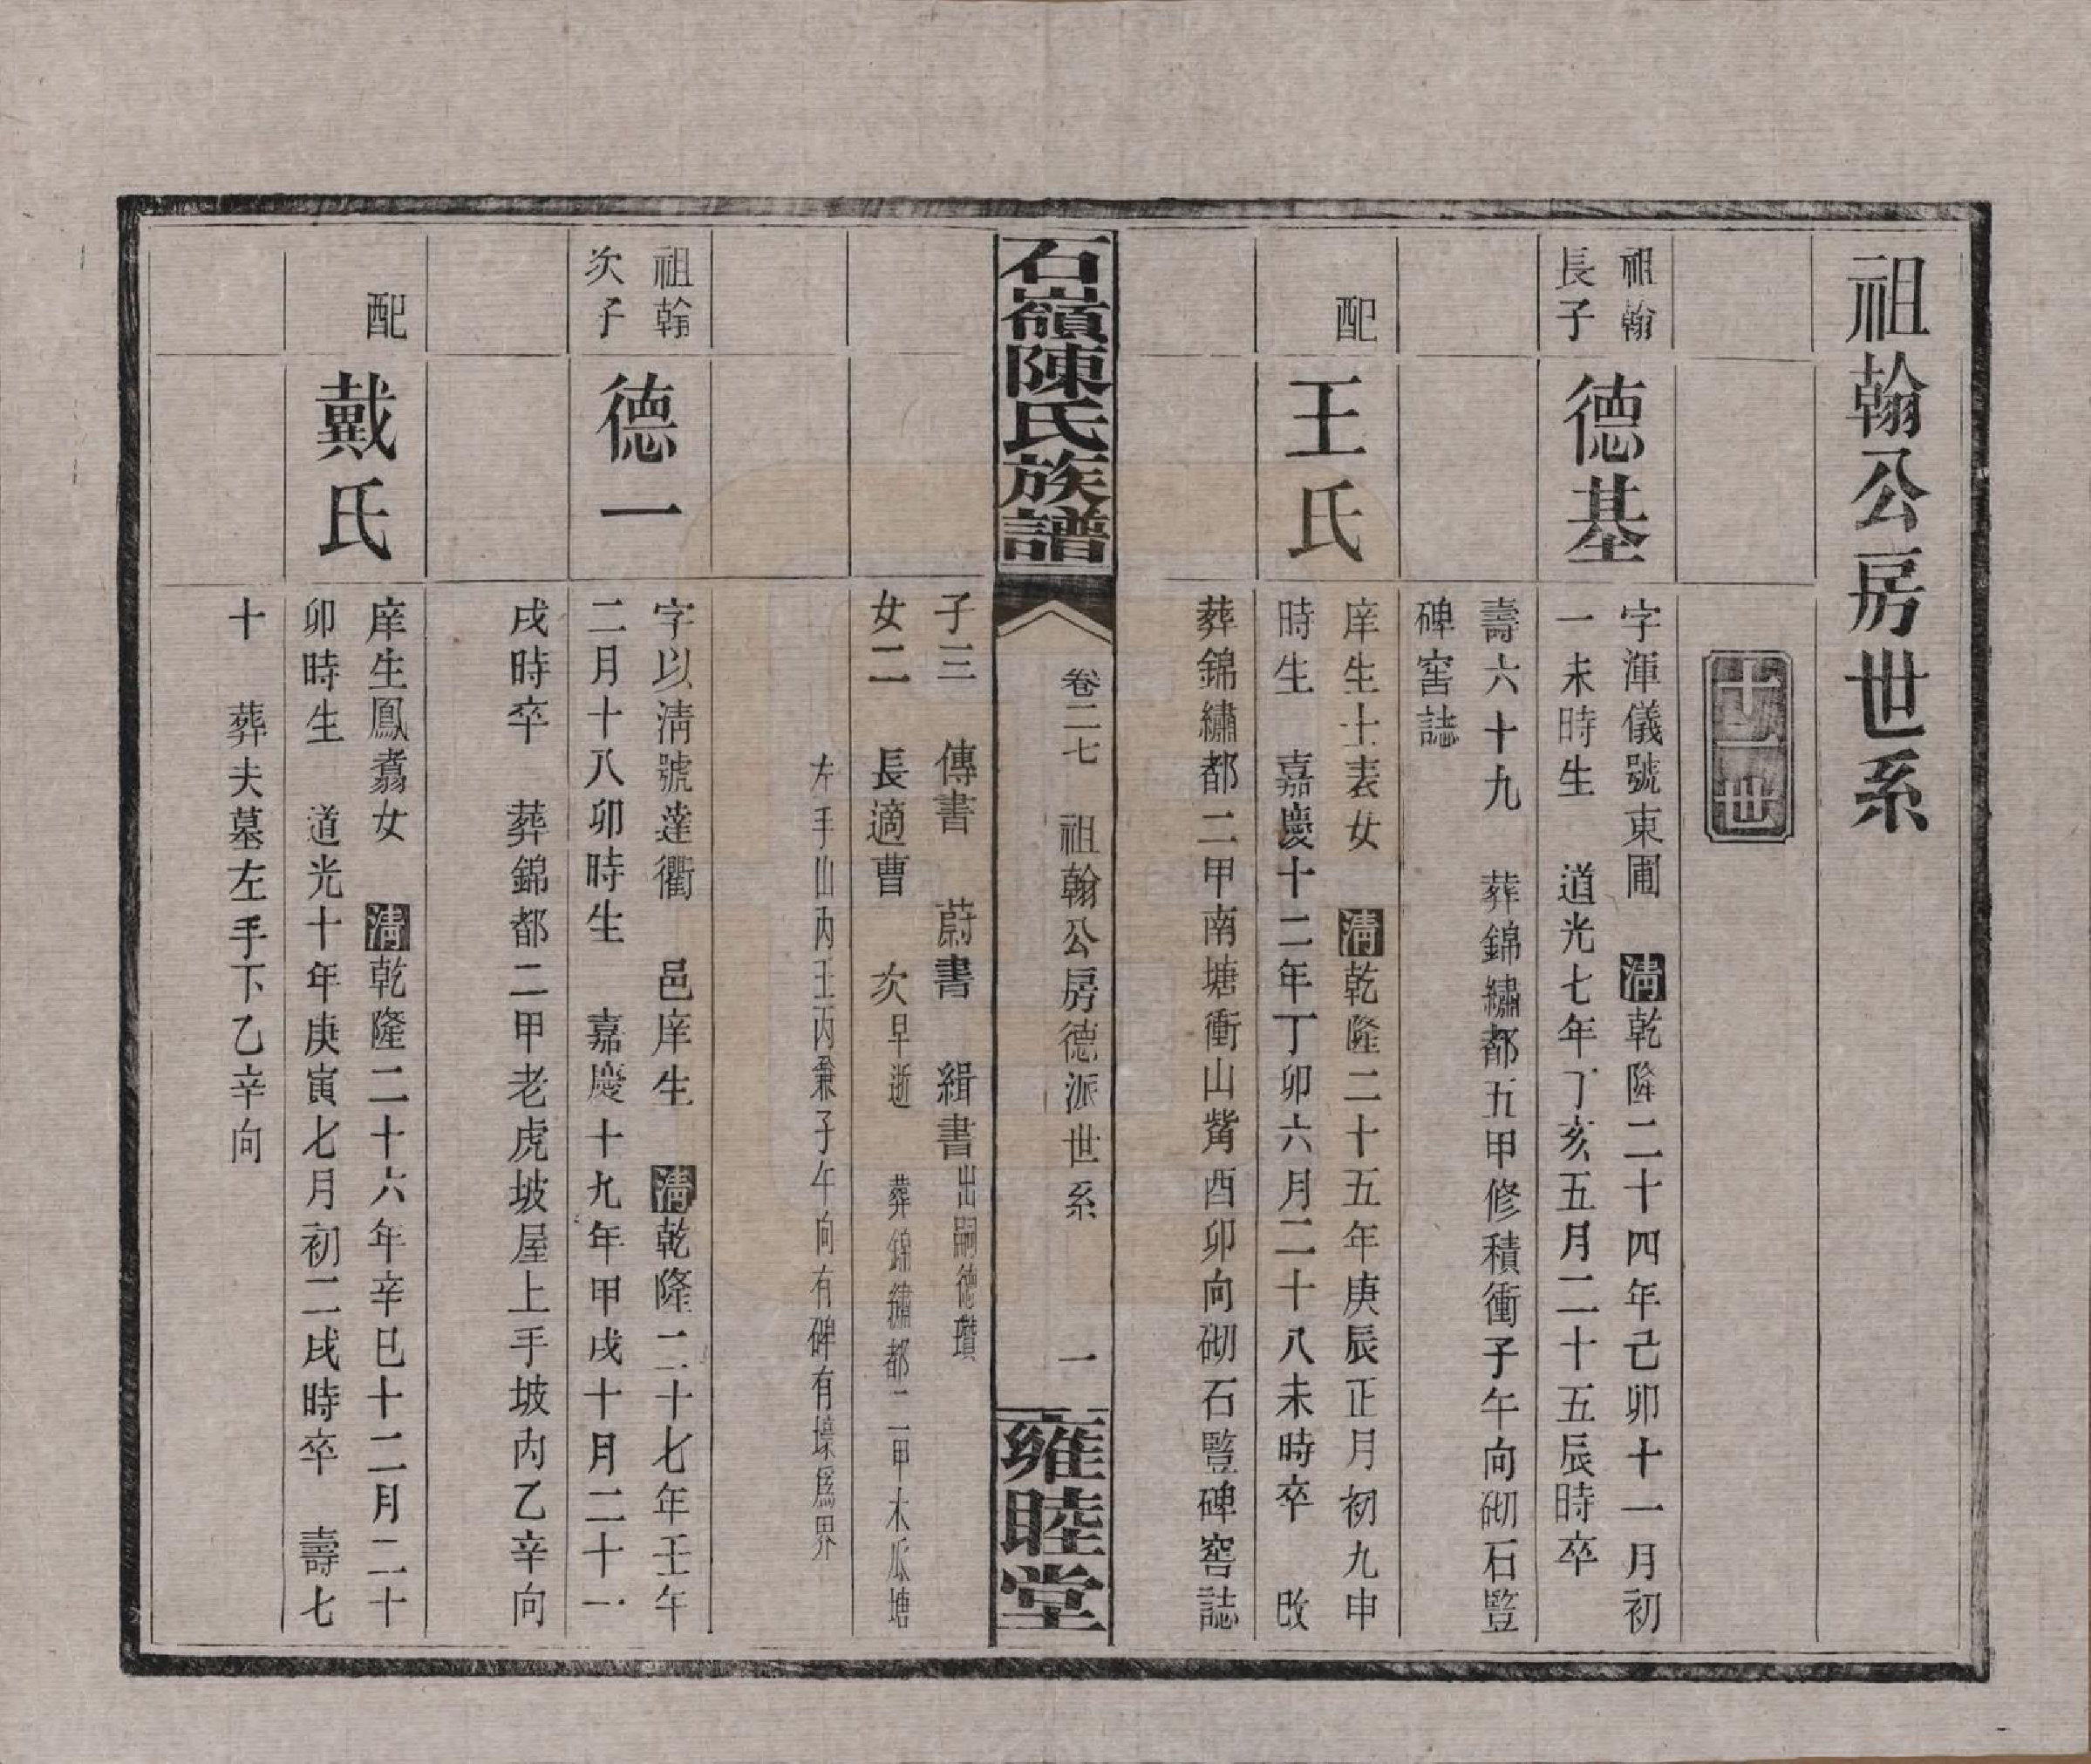 祖翰公房世系
十一世
祖翰
長子
德基
字渾儀號東圃 清乾隆二十四年己卯十一月初
一未時生 道光七年丁亥五月二十五辰時卒
壽六十九 葬錦繡都五甲修積衝子午向砌石豎
碑窖誌
配
王氏
庠生士表女 清乾隆二十五年庚辰正月初九申
時生 嘉慶十二年丁卯六月二十八未時卒 改
葬錦繡都二甲南塘衝山觜酉卯向砌石豎碑窖誌
石嶺陳氏族譜
卷二七 祖翰公房德派世系 一
雍睦堂
子三 傳書 蔚書 緝書出嗣德瓚
女二 長適曹 次早逝 葬錦繡都二甲木瓜塘
左手山丙壬丙兼子午向有碑有壕爲界
祖翰
次子
德一
字以清號達衢 邑庠生 清乾隆二十七年壬午
二月十八卯時生 嘉慶十九年甲戌十月二十一
戌時卒 葬錦都二甲老虎坡屋上手坡內乙辛向
配
戴氏
庠生鳳翥女 清乾隆二十六年辛巳十二月二十
卯時生 道光十年庚寅七月初二戌時卒 壽七
十 葬夫墓左手下乙辛向